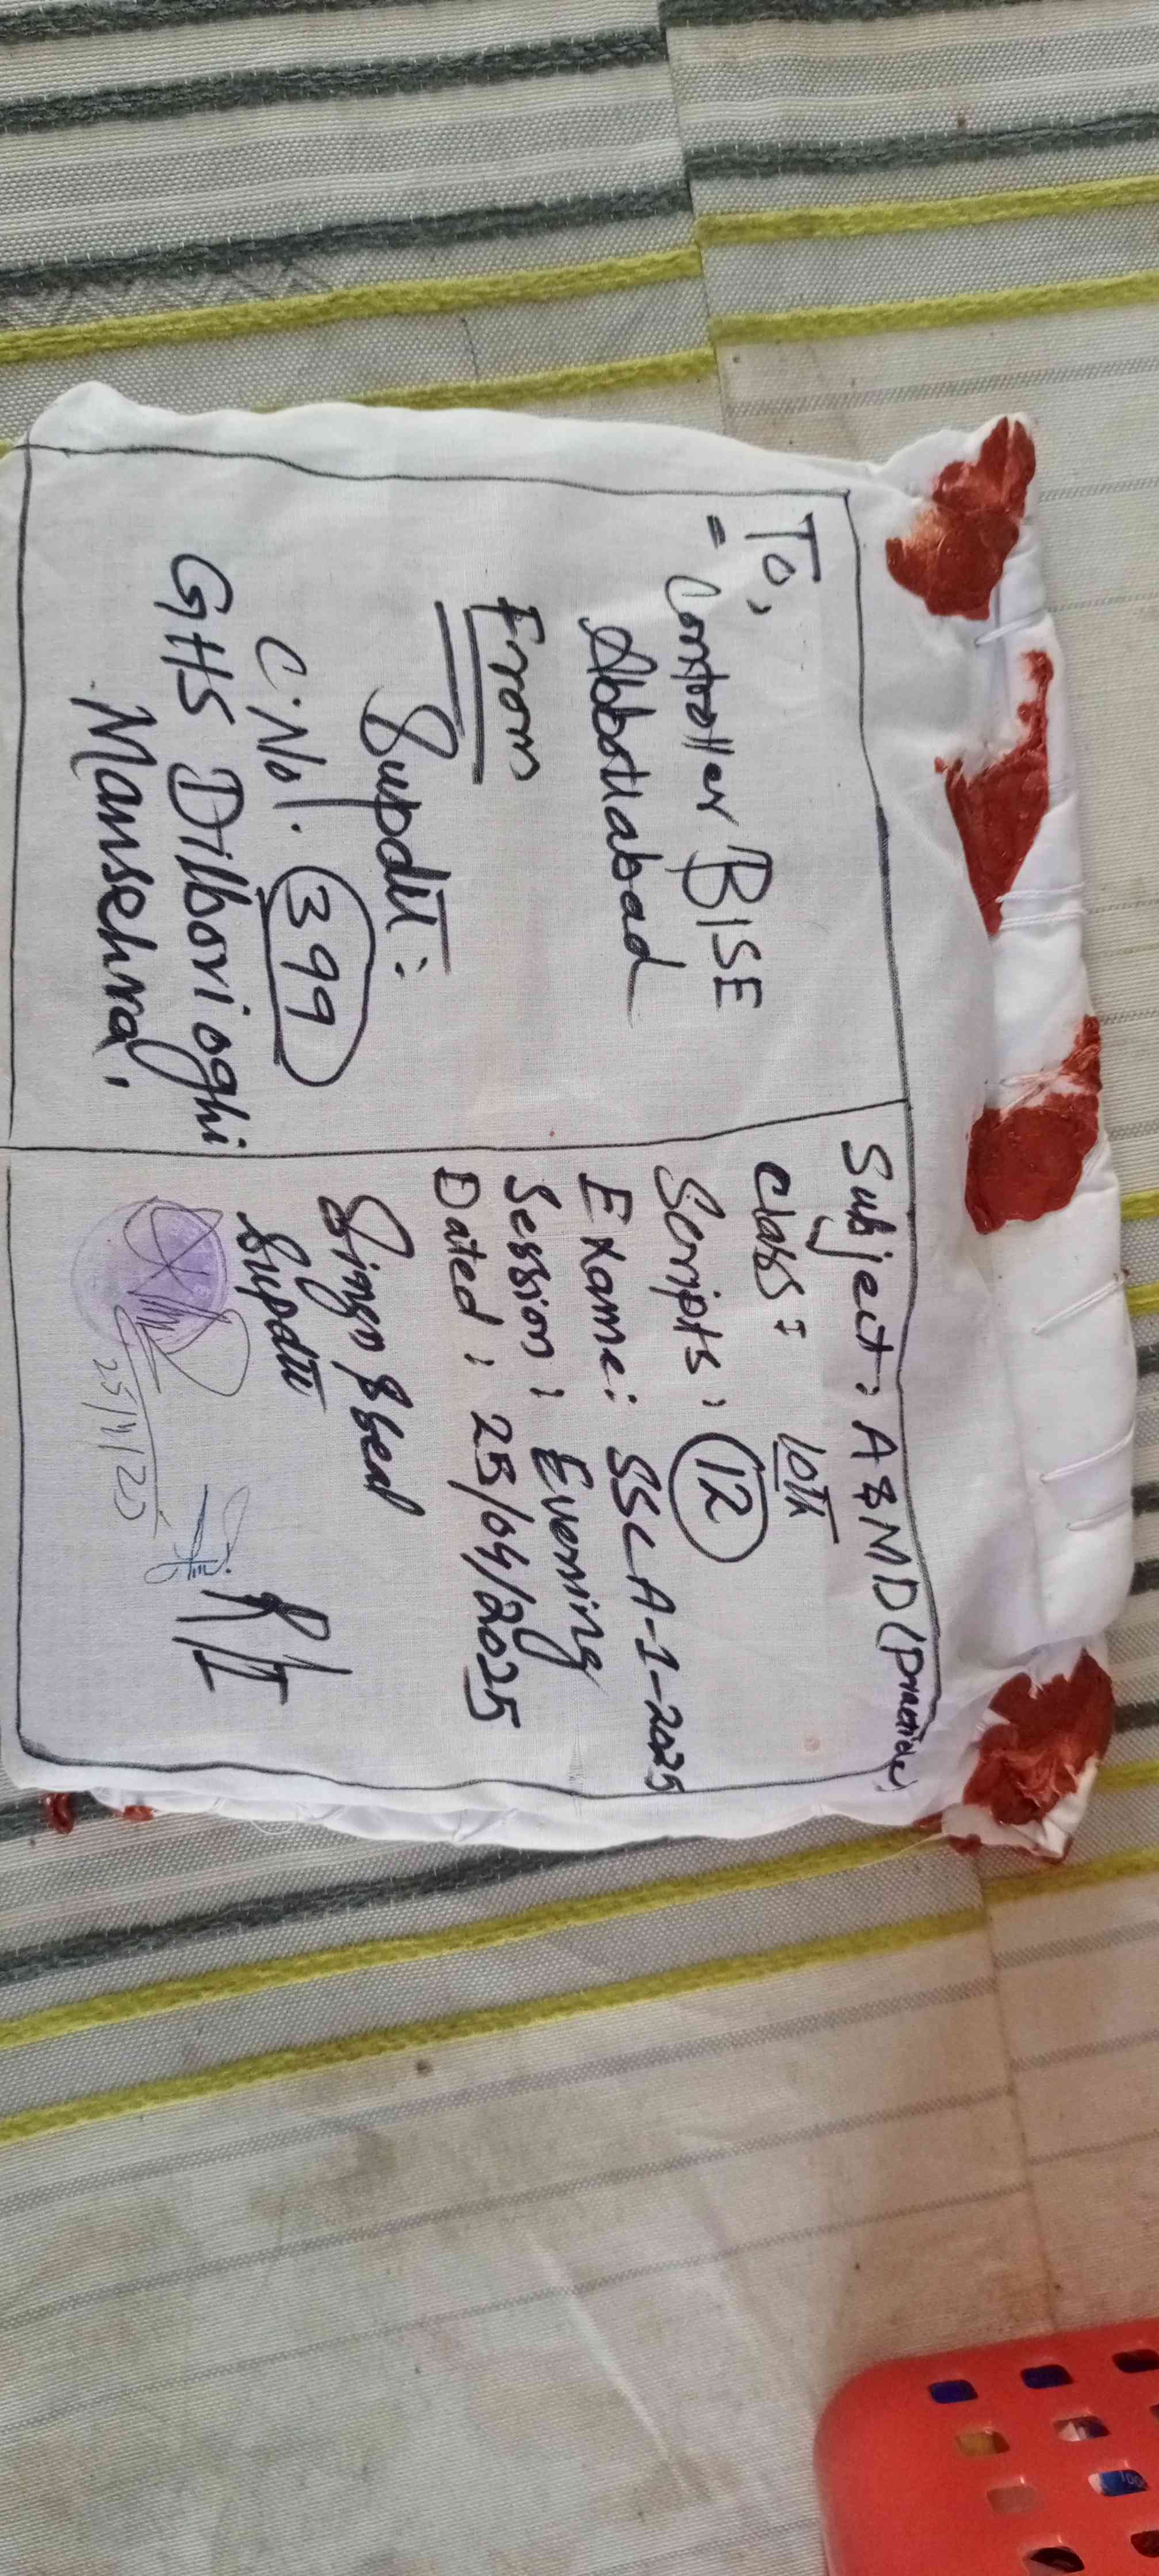 To,
Controller BISE
Abbottabad
From
Supdtt:
C.No. 399
GHS Dilbori oghi
Mansehra.
Subject: A&MD (Practical)
Class: 10th
Scripts: 12
Exame: SSC A-1-2025
Session: Evening
Dated: 25/04/2025
Singn & Seal
Supdtt
25/4/25